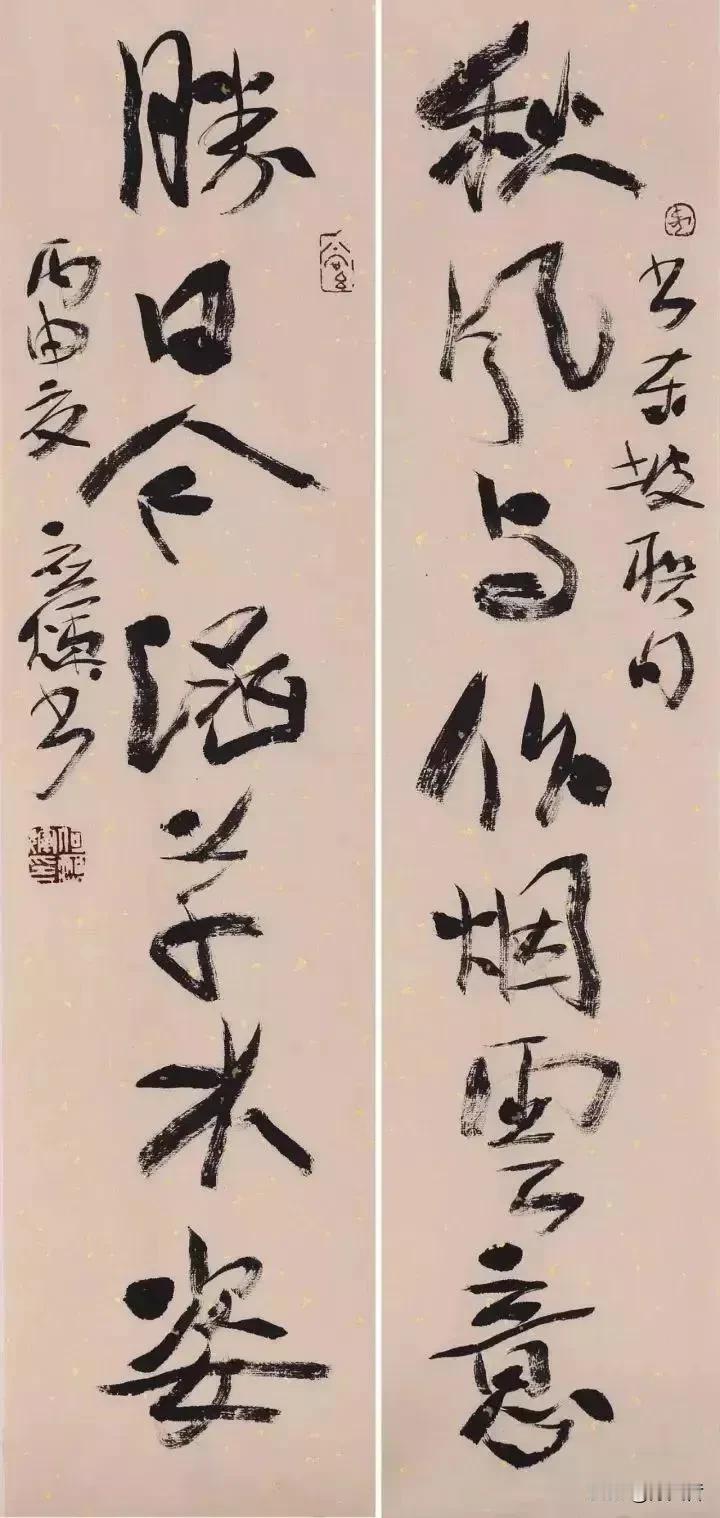 秋风与作烟雲意
书东坡联句
勝日令涵草木姿
丙申夏
书